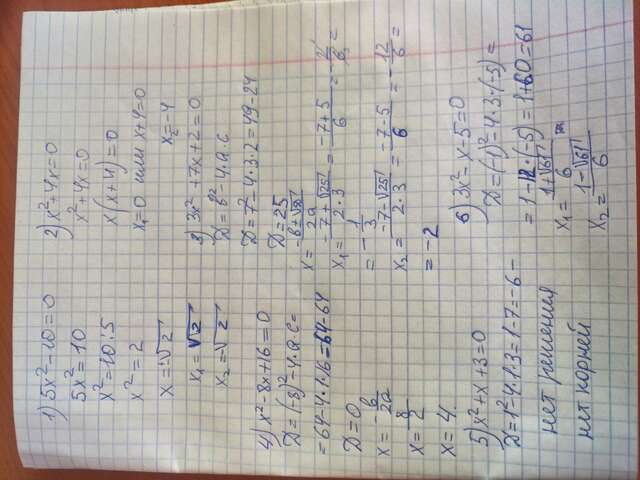 1) 5x²-10=0
5x²=10
x²=10:5
x²=2
x=±√2
x₁=√2
x₂=-√2
2) x²+4x=0
x²+4x=0
x(x+4)=0
x₁=0 или x+4=0
x₂=-4
3) 3x²+7x+2=0
D=b²-4·a·c
D=7²-4·3·2=49-24
D=25
x=(-b±√D)/2a
x₁=(-7+√25)/(2·3)=(-7+5)/6=-2/6=
=-1/3
x₂=(-7-√25)/(2·3)=(-7-5)/6=-12/6=
=-2
4) x²-8x+16=0
D=(-8)²-4·a·c=
=64-4·1·16=64-64
D=0
x=-b/2a
x=8/2
x=4
5) x²+x+3=0
D=1²-4·1·3=1-7=-6-
нет решения
нет корней
6) 3x²-x-5=0
D=(-1)²-4·3·(-5)=
=1-12·(-5)=1+60=61
x₁=(1+√61)/6
x₂=(1-√61)/6